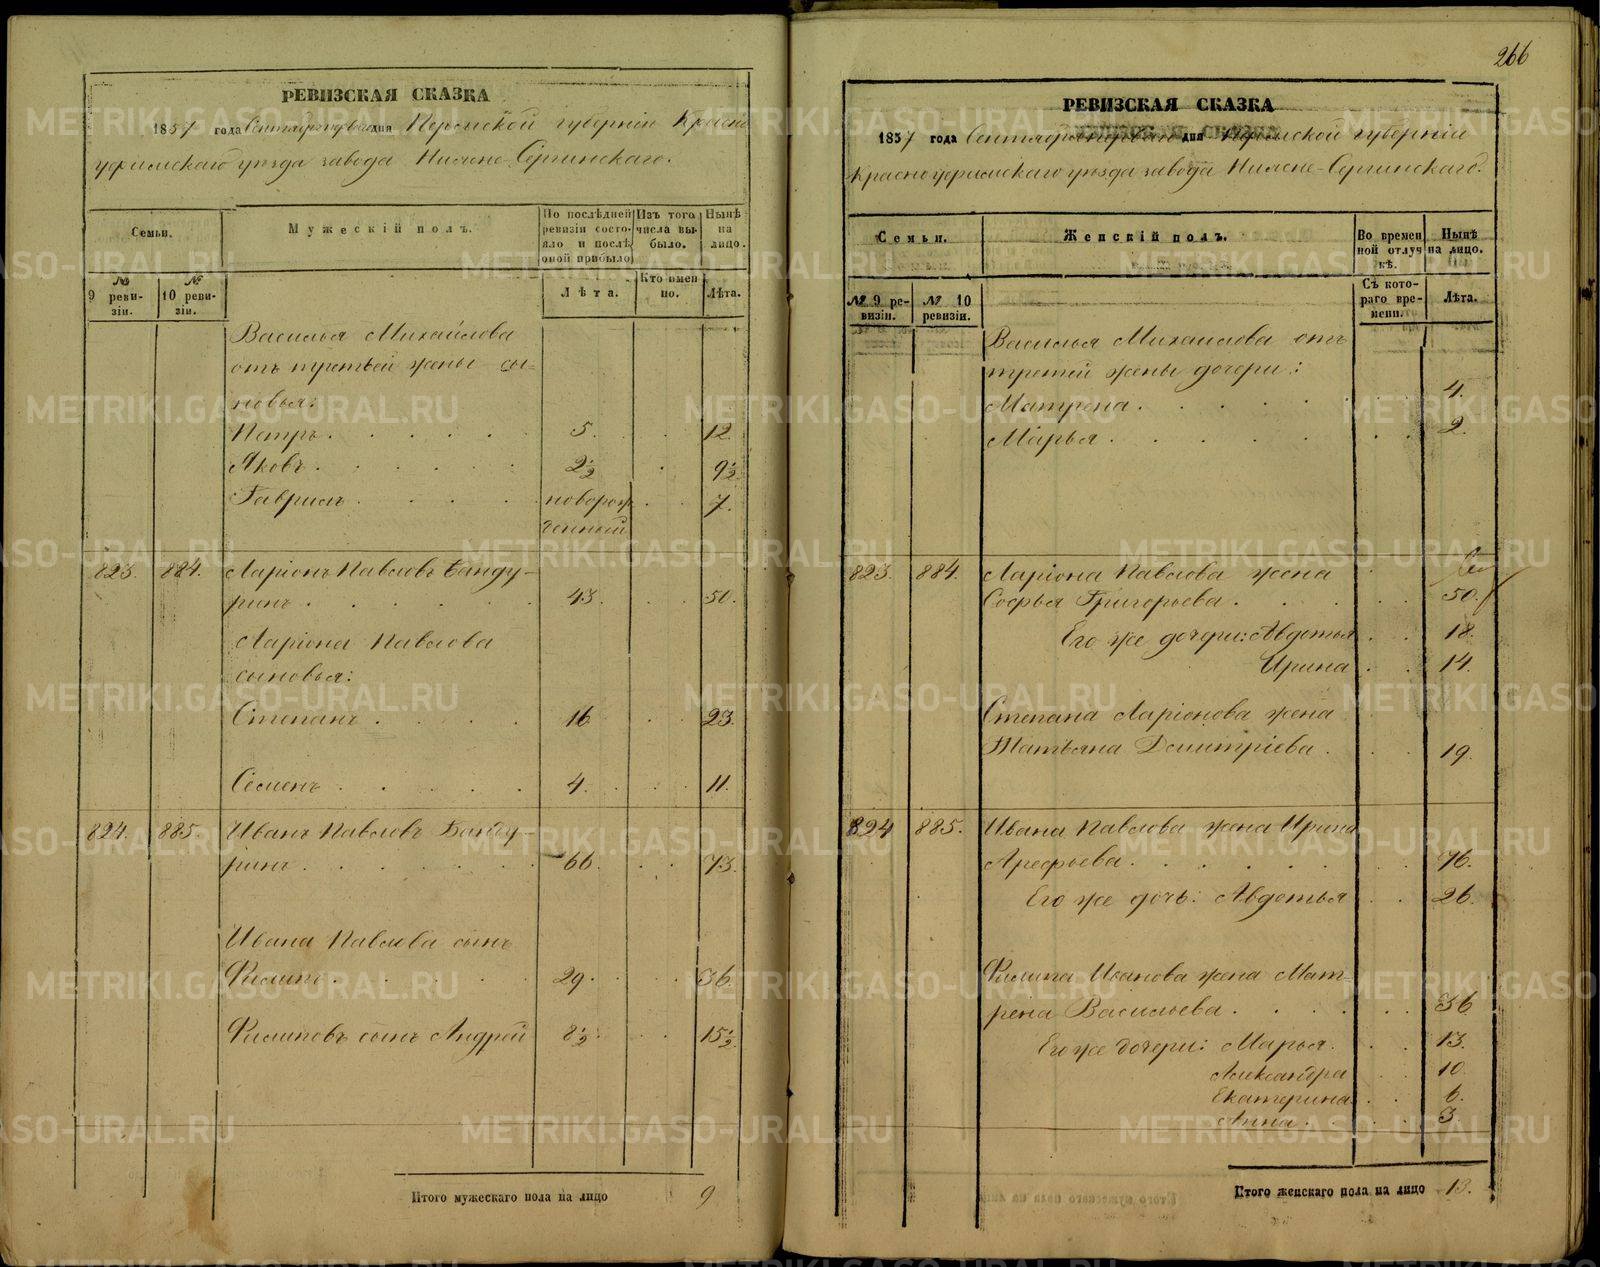 РЕВИЗСКАЯ СКАЗКА
1857 года Сентября первого дня Пермской губерніи Красно
уфимскаго уѣзда завода Нижне-Сергинскаго.
Семьи.
№ 9 ревизіи.
№ 10 ревизіи.
Мужескій полъ.
По послѣдней ревизіи состояло и послѣ оной прибыло
Лѣта.
Изъ того числа выбыло.
Кто имен но.
Нынѣ на лицо.
Лѣта.
Василья Михайлова
отъ третьей жены сы-
новья:
Петръ . . . . . 5. . . 12.
Яковъ . . . . . 2½ . 9½
Гаврилъ . . . . новорож . . 7.
денный
823. 884. Ларіонъ Павловъ Банду-
ринъ . . . . . . 43. . . 50.
Ларіона Павлова
сыновья:
Степанъ . . . . 16 . . 23.
Семенъ . . . . . 4. . . 11.
824. 885. Иванъ Павловъ Банду-
ринъ . . . . . . 66. . . 73.
Ивана Павлова сынъ
Филипъ . . . . . 29. . . 36.
Филиповъ сынъ Андрей 8½ . . 15½
Итого мужескаго пола на лицо 9
266
РЕВИЗСКАЯ СКАЗКА
1857 года Сентября первого дня Пермской губерніи
Красноуфимскаго уѣзда завода Нижне-Сергинскаго.
Семьи.
№ 9 ревизіи.
№ 10 ревизіи.
Женскій полъ.
Во времен ной отлуч кѣ.
Съ кото раго вре мени.
Нынѣ на лицо.
Лѣта.
Василья Михаилова отъ
третей жены дочери:
Матрена . . . . . 4.
Марья . . . . . . 2.
823. 884. Ларіона Павлова жена
Софья Григорьева . . . . 50.
Его же дочери: Авдотья . . 18.
Ирина . . 14.
Степана Ларіонова жена
Татьяна Дмитріева . . . 19.
824 885. Ивана Павлова жена Ирина
Арефьева . . . . . . 76.
Его же дочь: Авдотья . . 26.
Филипа Иванова жена Мат-
рена Васильева . . . . . 36
Его же дочери: Марья . . 13.
Александра . . 10.
Екатерина . . 6.
Анна . . 3.
Итого женскаго пола на лицо 13.
METRIKI.GASO-URAL.RU